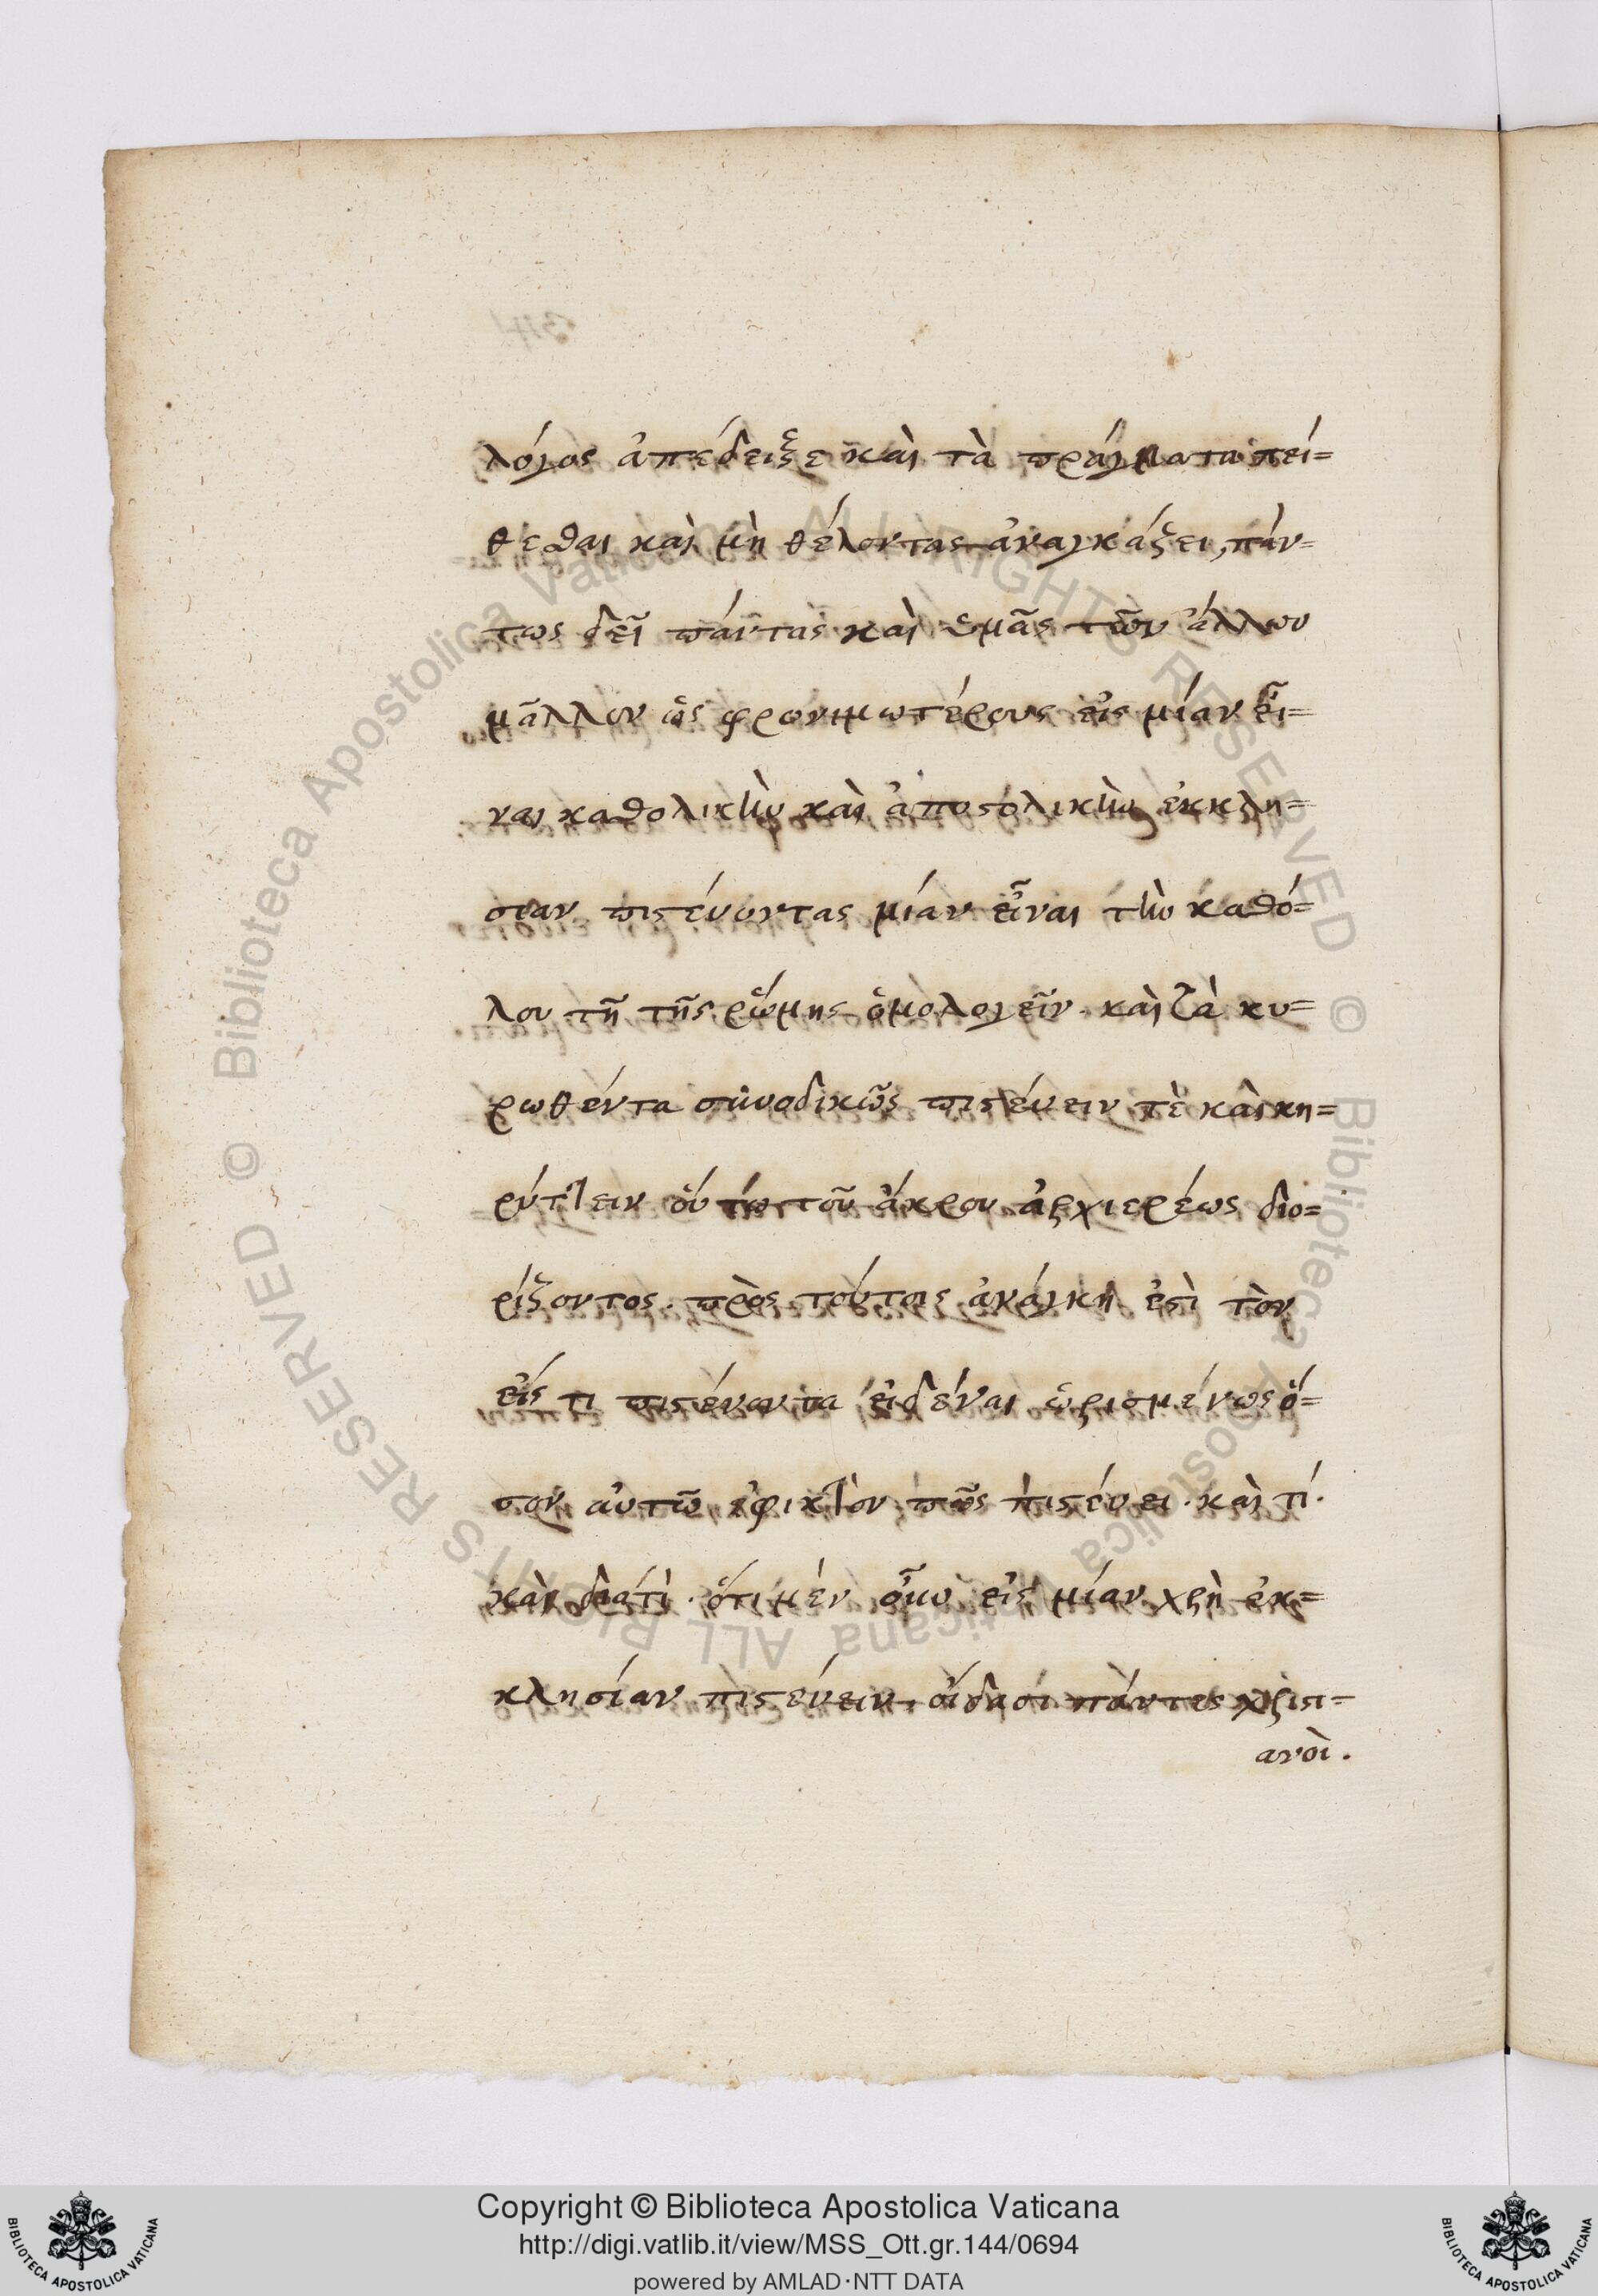 λόγος ἀπέδειξε καὶ τὰ πράγματα πεί=
θεσθαι καὶ μὴ θέλοντας ἀναγκάζει, πάν=
τως δεῖ πάντας καὶ ὑμᾶς τῶν ἄλλων
μᾶλλον ὡς φρονιμωτέρους εἰς μίαν εἶ=
ναι καθολικὴν καὶ ἀποστολικὴν ἐκκλη=
σίαν πιστεύοντας μίαν εἶναι τὴν καθό=
λου τῇ τῆς ῥώμης ὁμολογεῖν. καὶ τὰ κυ=
ρωθέντα συνοδικῶς πιστεύειν τὲ καὶ κη=
ρύττειν οὕτω τοῦ ἄκρου ἀρχιερέως διο=
ρίζοντος. πρὸς τούτοις ἀνάγκη ἐστὶ τὸν
εἴς τι πιστεύοντα εἰδέναι ὡρισμένως ὅ=
σον αὐτῷ ἐφικτὸν πῶς πιστεύει. καὶ τί.
καὶ διατὶ. ὅτι μὲν οὖν εἰς μίαν χρὴ ἐκ=
κλησίαν πιστεύειν, οἴδασι πάντες χριστι=
ανοὶ.
Copyright © Biblioteca Apostolica Vaticana
http://digi.vatlib.it/view/MSS_Ott.gr.144/0694
powered by AMLAD·NTT DATA
BIBLIOTECA APOSTOLICA VATICANA
BIBLIOTECA APOSTOLICA VATICANA
© Biblioteca Apostolica Vaticana ALL RIGHTS RESERVED
© Biblioteca Apostolica Vaticana ALL RIGHTS RESERVED